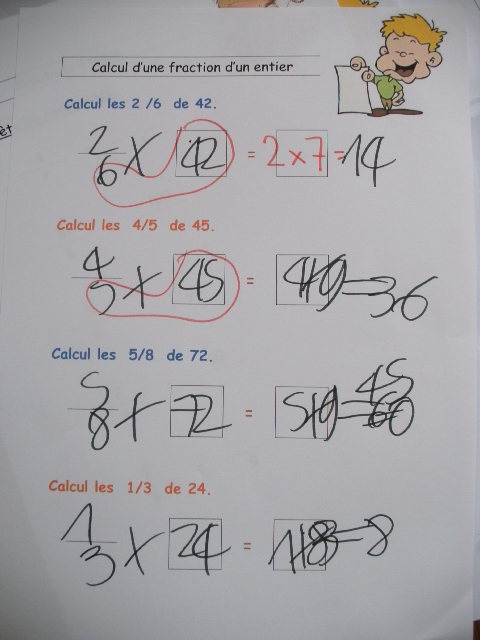 Calcul d'une fraction d'un entier
Calcul les 2 /6 de 42.
2/6 x 42 = 2 x 7 = 14
Calcul les 4/5 de 45.
4/5 x 45 = 4x9 = 36
Calcul les 5/8 de 72.
5/8 x 72 = 5x9 = 45
Calcul les 1/3 de 24.
1/3 x 24 = 1x8 = 8